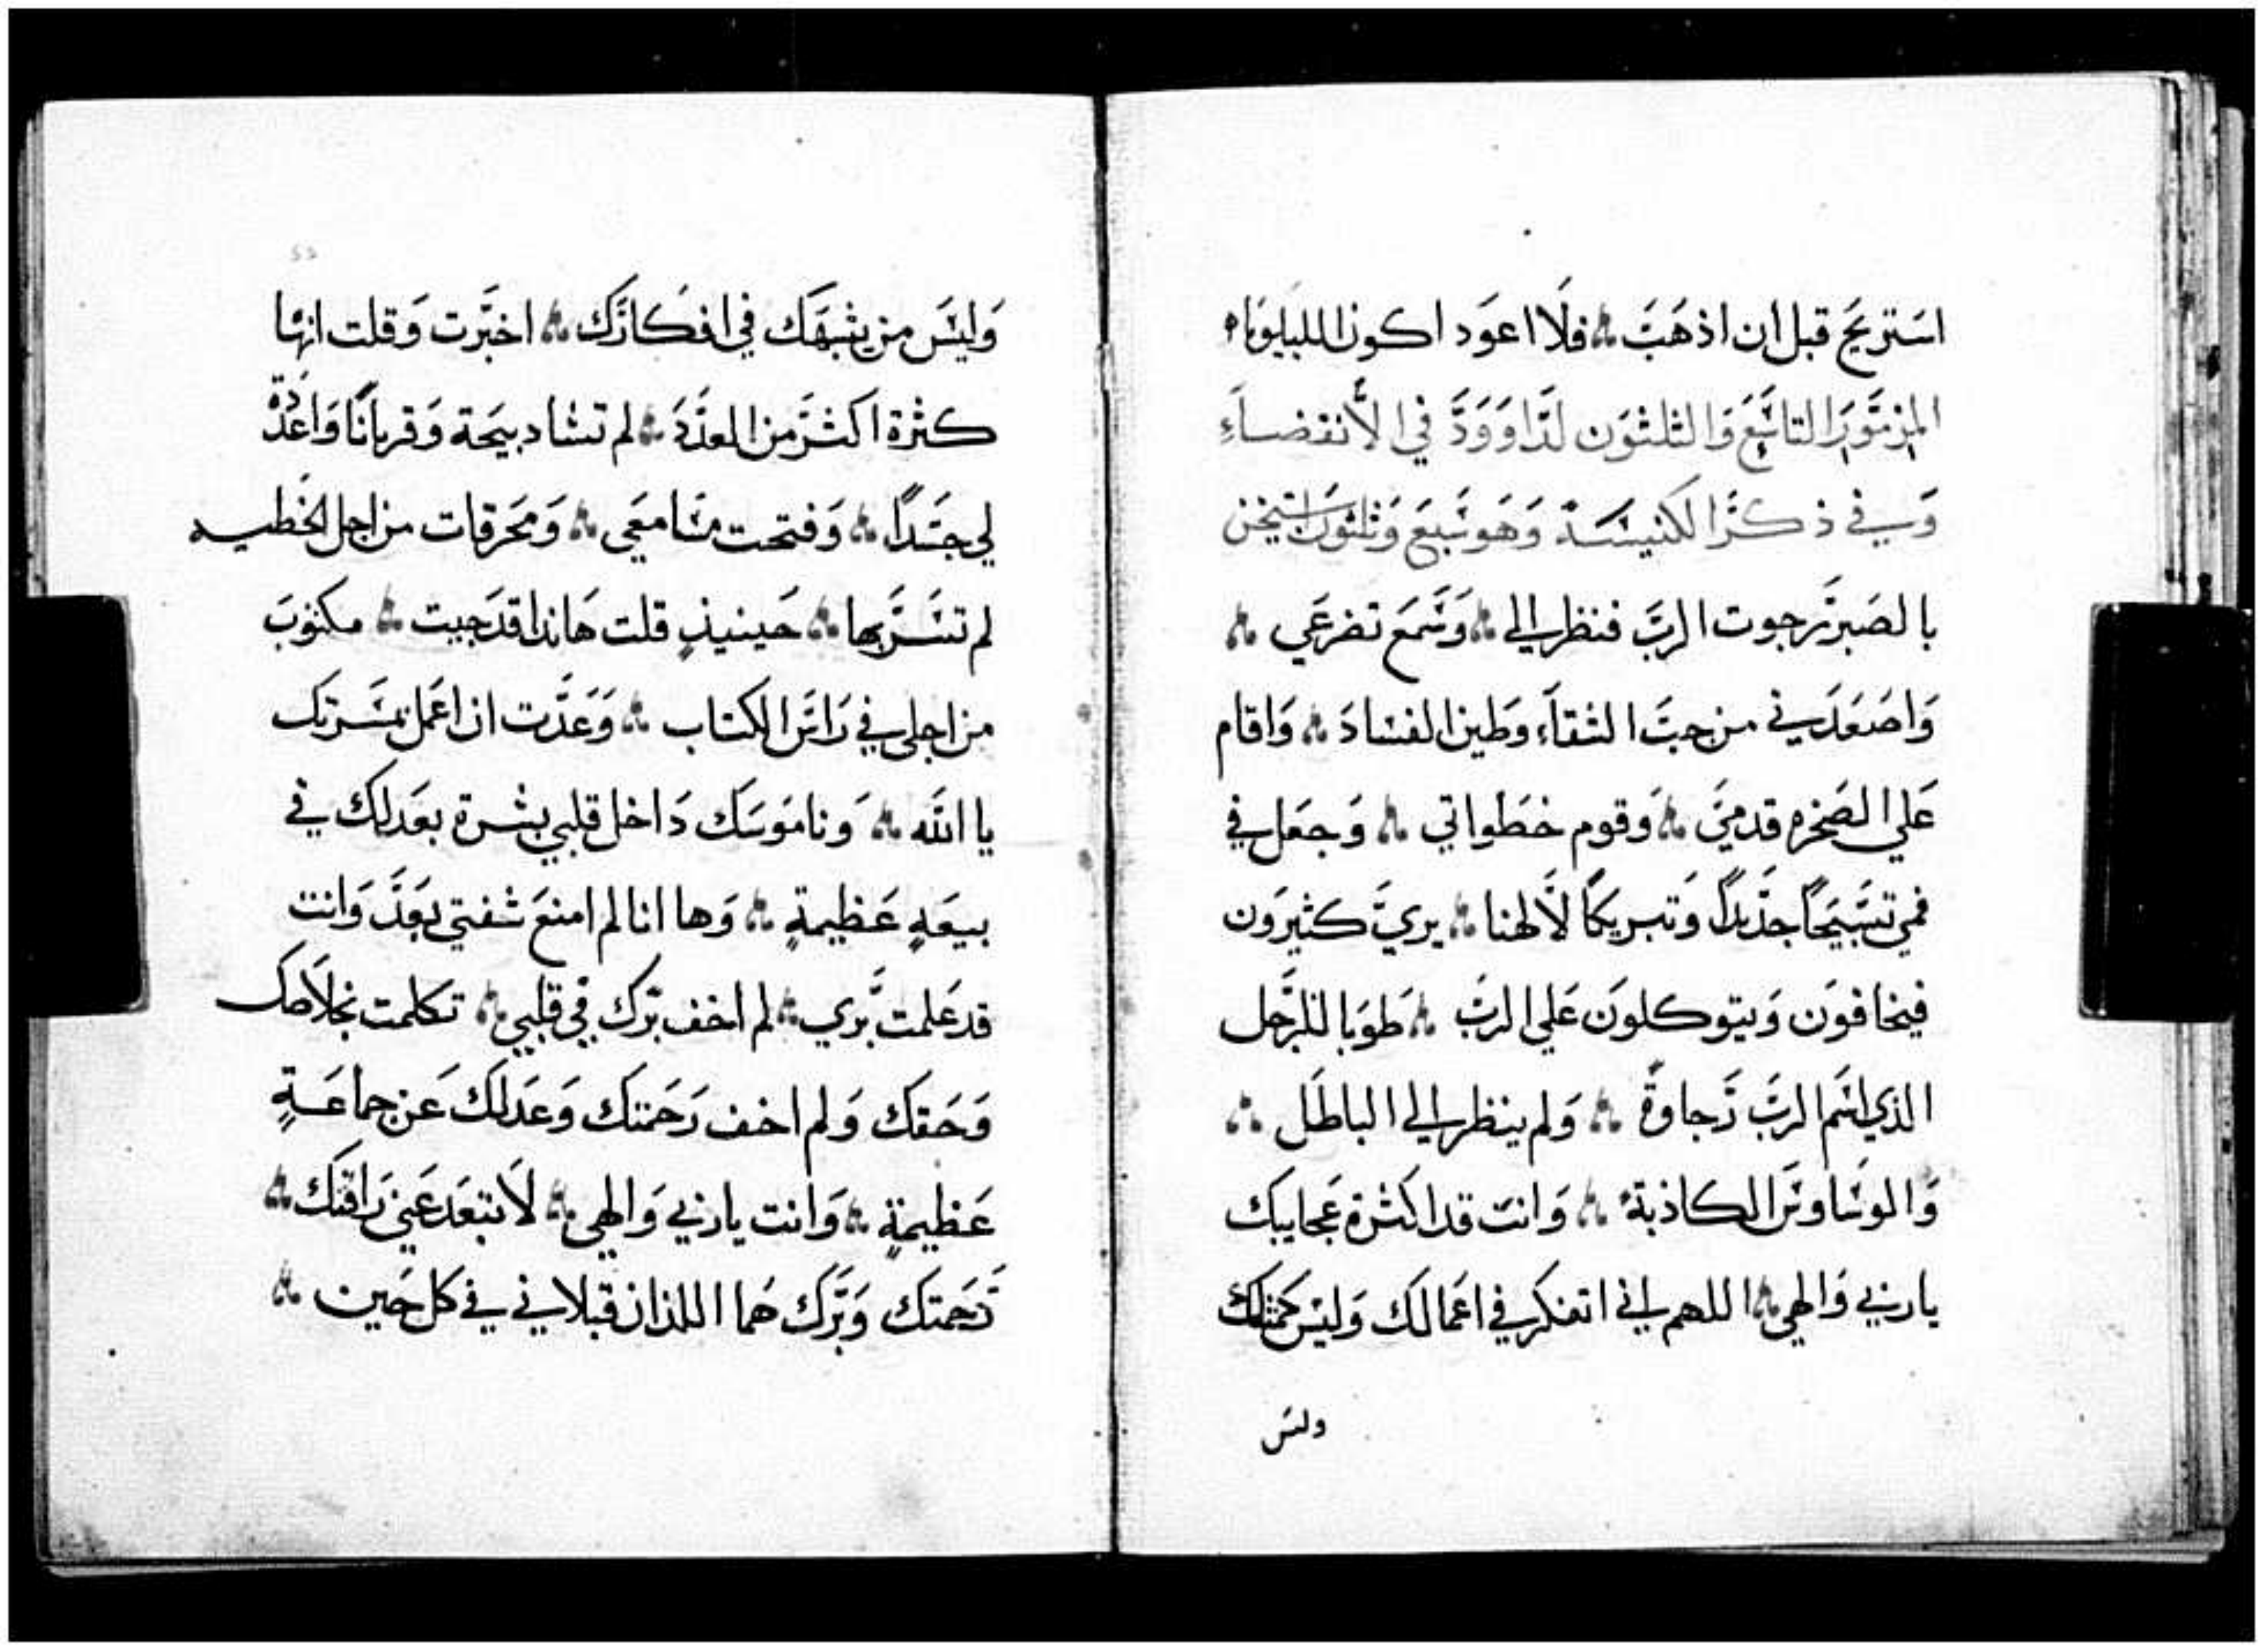 استريح قبل ان اذهب فلا اعود اكون الليلويا
المزمور التاسع والثلثون لداوود في الانقضاء
وفي ذكر الكنيسة وهو سبع وثلثون استيخن
بالصبر رجوت الرب فنظر الي وسمع تضرعي
واصعدني من جب الشقاء وطين الفساد واقام
علي الصخره قدمي وقوم خطواتي وجعل في
فمي تسبيحا جديدا وتبريكا لالهنا يري كثيرون
فيخافون ويتوكلون علي الرب طوبا للرجل
الذي اسم الرب رجاوة ولم ينظر الي الباطل
والوساوس الكاذبة وانت قد اكثرة عجايبك
ياربي والهي اللهم اني اتفكر في اعمالك وليس كمثلك
وليس
وليس من يشبهك في افكارك اخبرت وقلت انها
كثرة اكثر من العدد لم تشا دبيحة وقربانا واعددة
لي جسدا وفتحت مسامعي ومحرقات من اجل الخطيه
لم تسر بها حينيذ قلت هانذا قد جيت مكتوب
من اجلي في راس الكتاب وعدت ان اعمل بمسرتك
يا الله وناموسك داخل قلبي بشرة بعدلك في
بيعه عظيمة وها انا لم امنع شفتي بعد وانت
قد علمت بري لم اخف برك في قلبي تكلمت بخلاصك
وحقك ولم اخف رحمتك وعدلك عن جماعة
عظيمة وانت ياربي والهي لا تبتعد عني رافتك
رحمتك وبرك هما اللذان قبلاني في كل حين